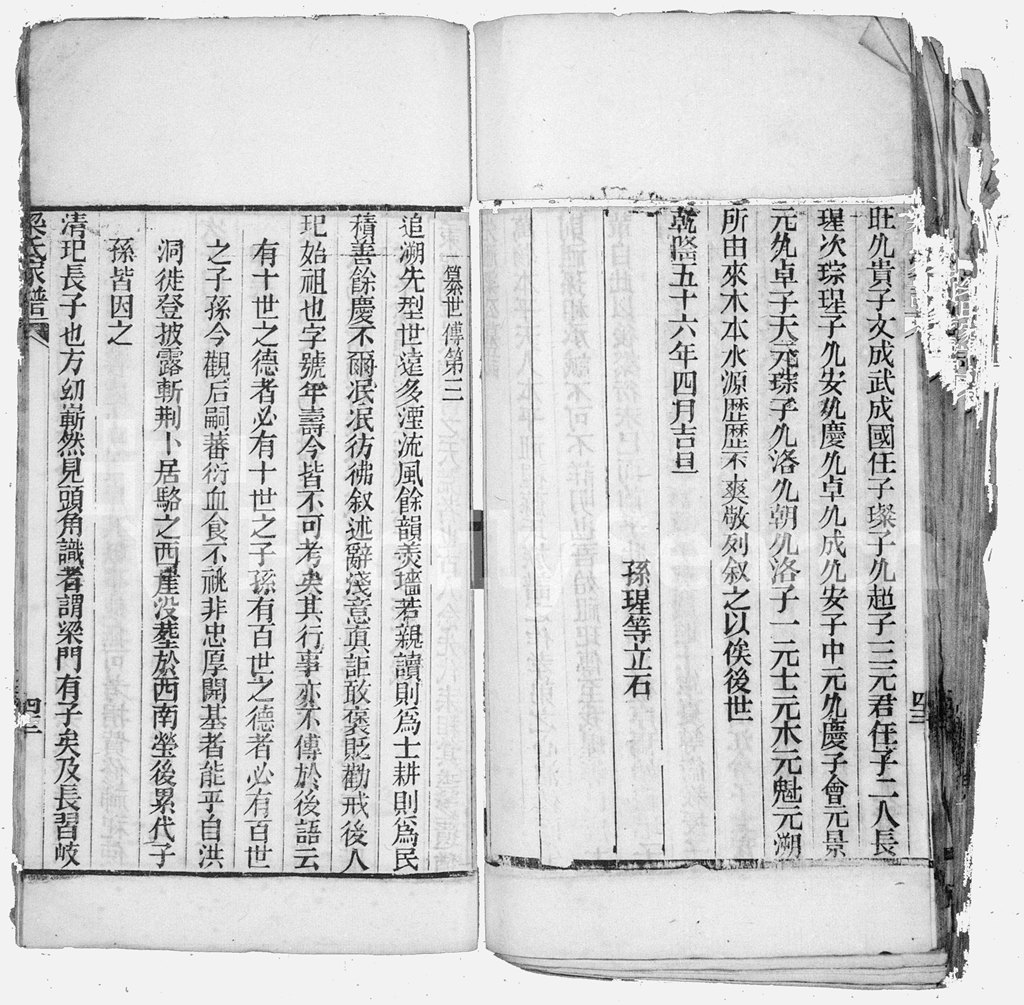 旺允貴子文成武成國任子璨子允超子三元君任子二人長
瑆次琮瑆子允安允慶允卓允成允安子中元允慶子會元景
元允卓子大元琮子允洛允朝允洛子一元士元木元魁元溯
所由來木本水源歷歷不爽敬列叙之以俟後世
乾隆五十六年四月吉旦
孫瑆等立石
纂世傳第三
追溯先型世遠多湮流風餘韻羡墻若親讀則為士耕則為民
積善餘慶不爾泯泯彷彿叙述辭淺意真詎敢褒貶勸戒後人
玘始祖也字號年壽今皆不可考矣其行事亦不傳於後語云
有十世之德者必有十世之子孫有百世之德者必有百世
之子孫今觀后嗣蕃衍血食不祧非忠厚開基者能乎自洪
洞徙登披露斬荆卜居駱之西崖没塟於西南塋後累代子
孫皆因之
清玘長子也方㓜嶄然見頭角識者謂梁門有子矣及長習岐
梁氏家譜